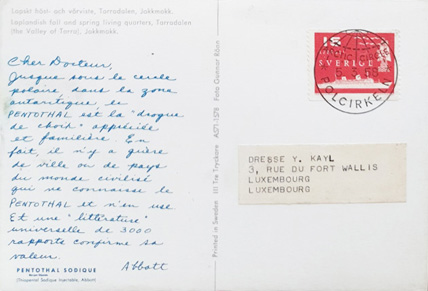 Lapskt höst- och vårviste, Tarradalen, Jokkmokk.
Laplandish fall and spring living quarters, Tarradalen
(the Valley of Tarra), Jokkmokk.
Cher Docteur,
Jusque sous le cercle
polaire dans la zona
antarctique le
PENTOTHAL est la "drogue
de choix" appréciée
et familière. En
fait, il n'y a guère
de ville ou de pays
du monde civilisé
qui ne connaisse le
PENTOTHAL et n'en use.
Et une "littérature"
universelle de 3000
rapports confirme sa
valeur.
Abbott
PENTOTHAL SODIQUE
(Thiopental Sodique Injectable, Abbott)
Printed in Sweden
Ill Tre Tryckare
Foto Gunnar
SVERIGE
POLCIRKELN
DRESSE Y. KAYL
3, RUE DU FORT WALLIS
LUXEMBOURG
LUXEMBOURG